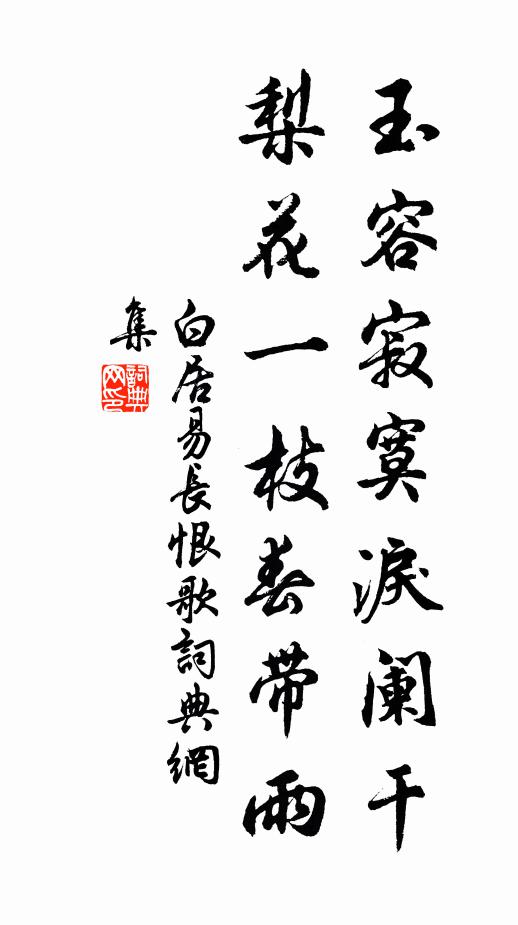 玉容寂寞淚阑干
梨花一枝春带雨
白居易長恨歌詞典網
集
詞典网印